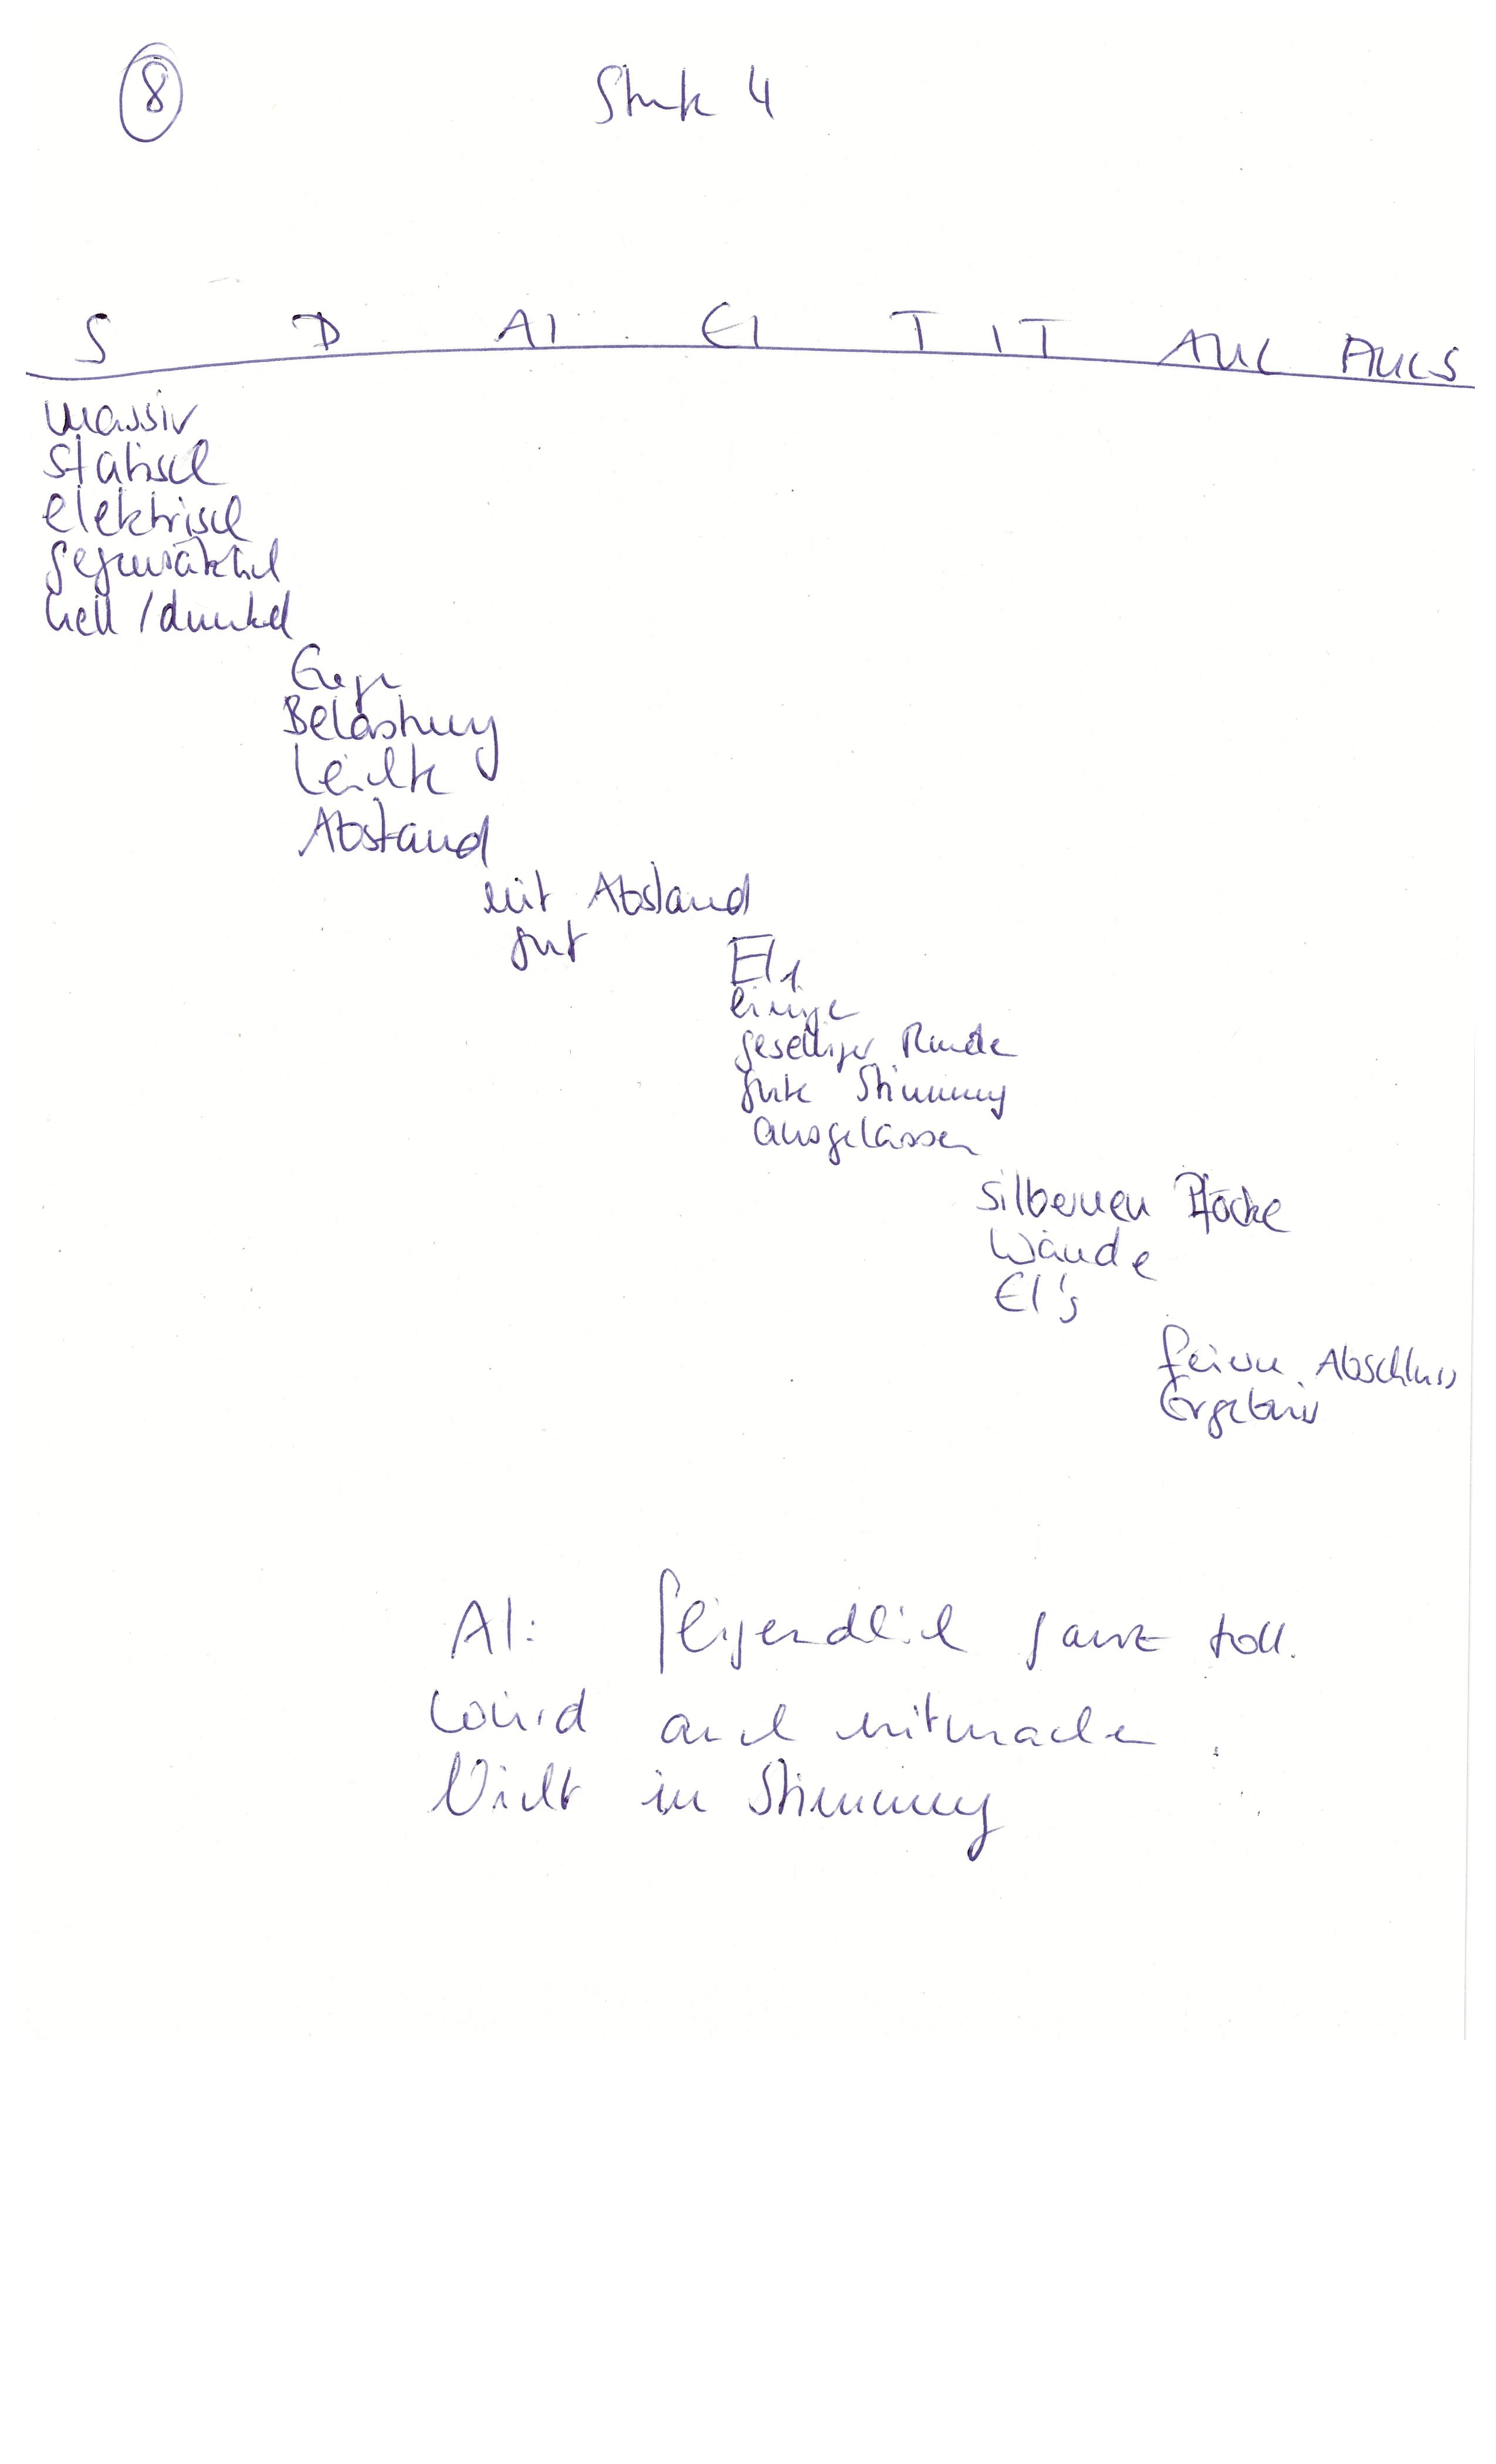 8
Stufe 4
S D AI EI T IT AUL AULS
massiv
statisch
elektrisch
hell / dunkel
Enge
Belastung
Leichte
Abstand
mit Abstand
gut
EI1
einige
geselliger Runde
gute Stimmung
ausgelassen
silbernen Pflöcke
Wände
EI's
feiern Abschluss
Ergebnis
AI: ganz toll.
Würd auch mitmachen
Nicht in Stimmung